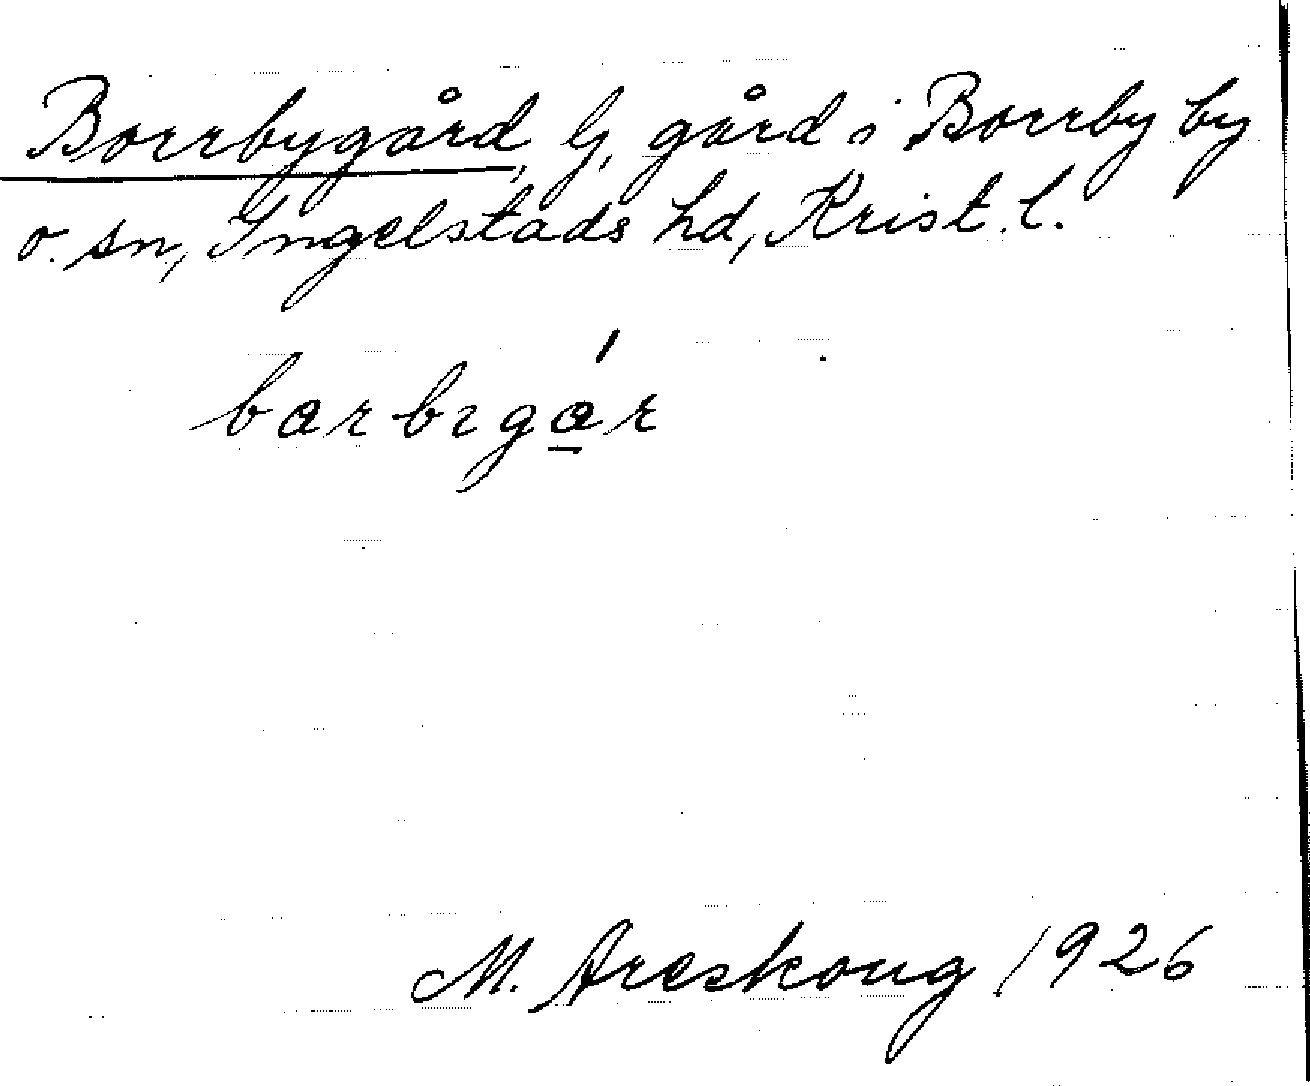 Borrbygård, lj, gård i Borrby by
o. sn, Ingelstads hd, Krist. l.
barbɪgá̱r
M. Areskoug 1926